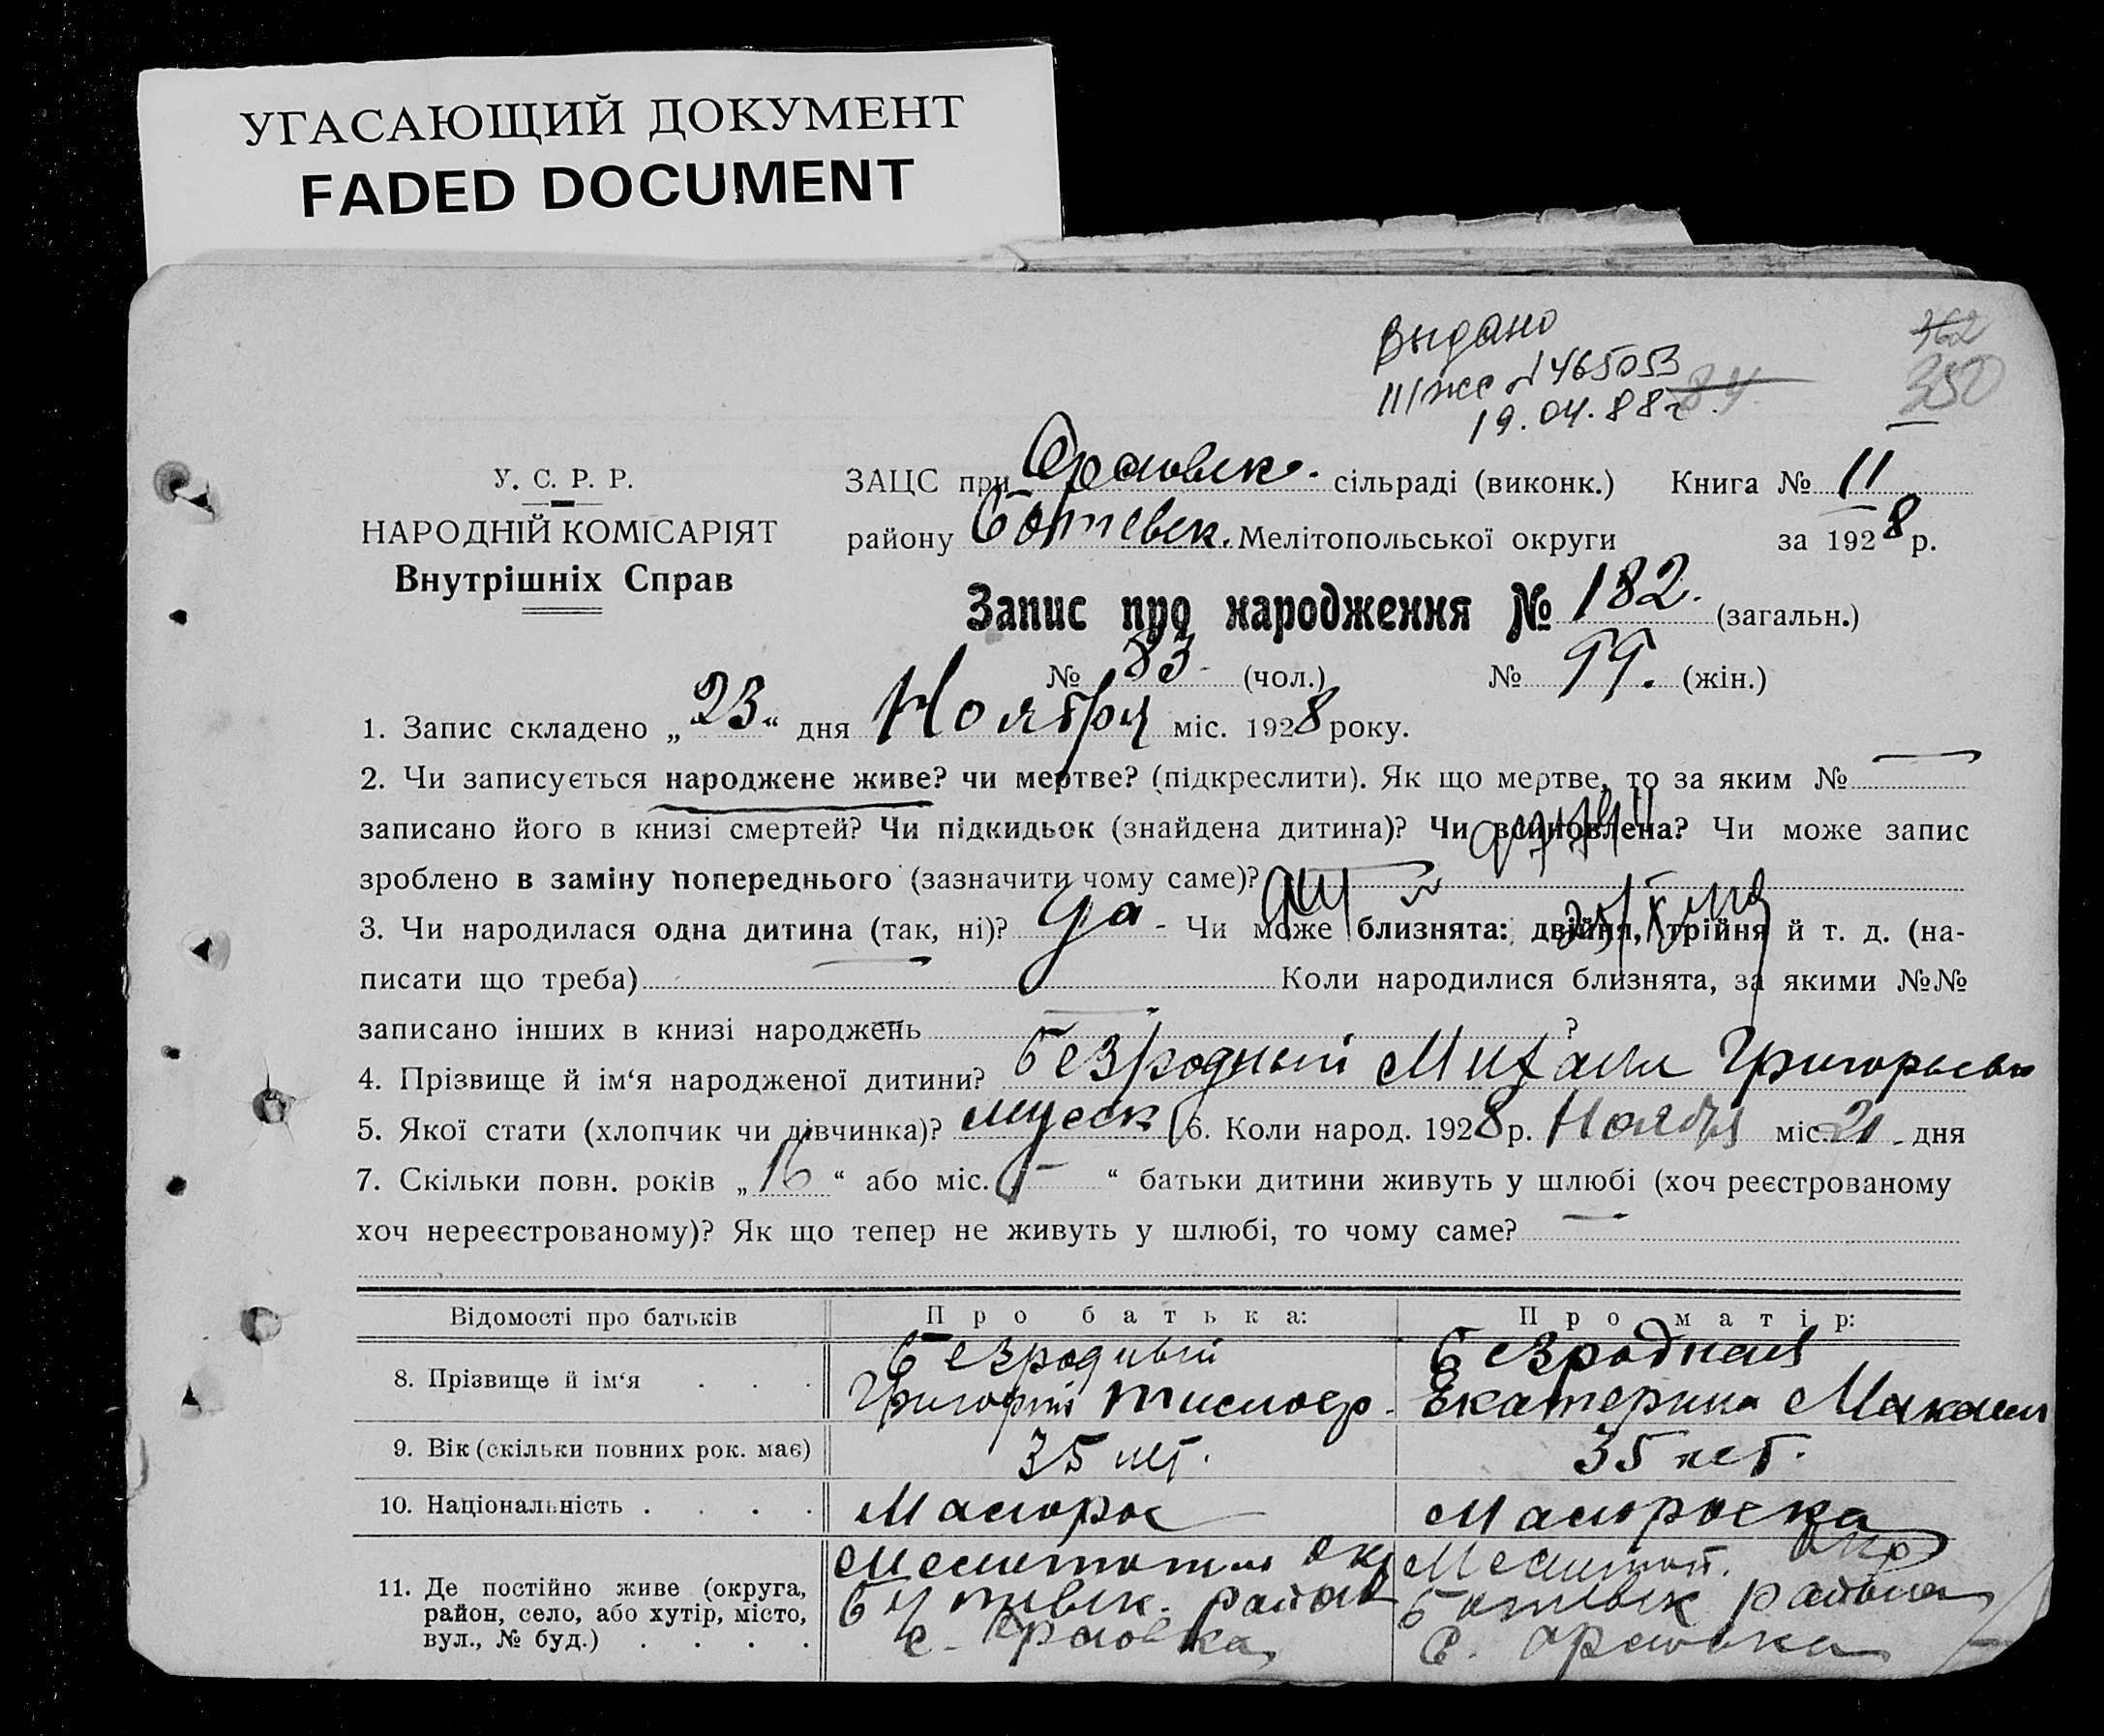 УГАСАЮЩИЙ ДОКУМЕНТ
FADED DOCUMENT
Выдано
1465053
19.04.88г.
362
350
У. С. Р. Р.
НАРОДНІЙ КОМІСАРІЯТ
Внутрішніх Справ
ЗАЦС при Орловск. сільраді (виконк.) Книга № 11
району Ботиевск. Мелітопольської округи за 1928 р.
Запис про народження № 182. (загальн.)
№ 83 (чол.) № 99. (жін.)
1. Запис складено „23“ дня Ноября міс. 1928 року.
2. Чи записується народжене живе? чи мертве? (підкреслити). Як що мертве, то за яким № —
записано його в книзі смертей? Чи підкидьок (знайдена дитина)? Чи всиновлена? Чи може запис
зроблено в заміну попереднього (зазначити чому саме)?
3. Чи народилася одна дитина (так, ні)? Да - Чи може близнята: двійня, трійня й т. д. (на-
писати що треба) — Коли народилися близнята, за якими №№
записано інших в книзі народжень — ?
4. Прізвище й ім‘я народженої дитини? Безродный Михаил Григорьевич
5. Якої стати (хлопчик чи дівчинка)? мужск 6. Коли народ. 1928 р. Ноября міс. 21 дня
7. Скільки повн. років „16“ або міс. „—“ батьки дитини живуть у шлюбі (хоч реєстрованому
хоч нереєстрованому)? Як що тепер не живуть у шлюбі, то чому саме? —
Відомості про батьків Про батька: Про матір:
8. Прізвище й ім‘я . . . Безродный Григорий Безродная Екатерина
9. Вік (скільки повних рок. має) 35 лет. 35 лет.
10. Національність . . . . Малорос Малороска
11. Де постійно живе (округа, Мелитопол окр Мелитоп. окр
район, село, або хутір, місто, Ботиевск. район Ботиевск района
вул., № буд.) . . . . с. Орловка с. Орловка